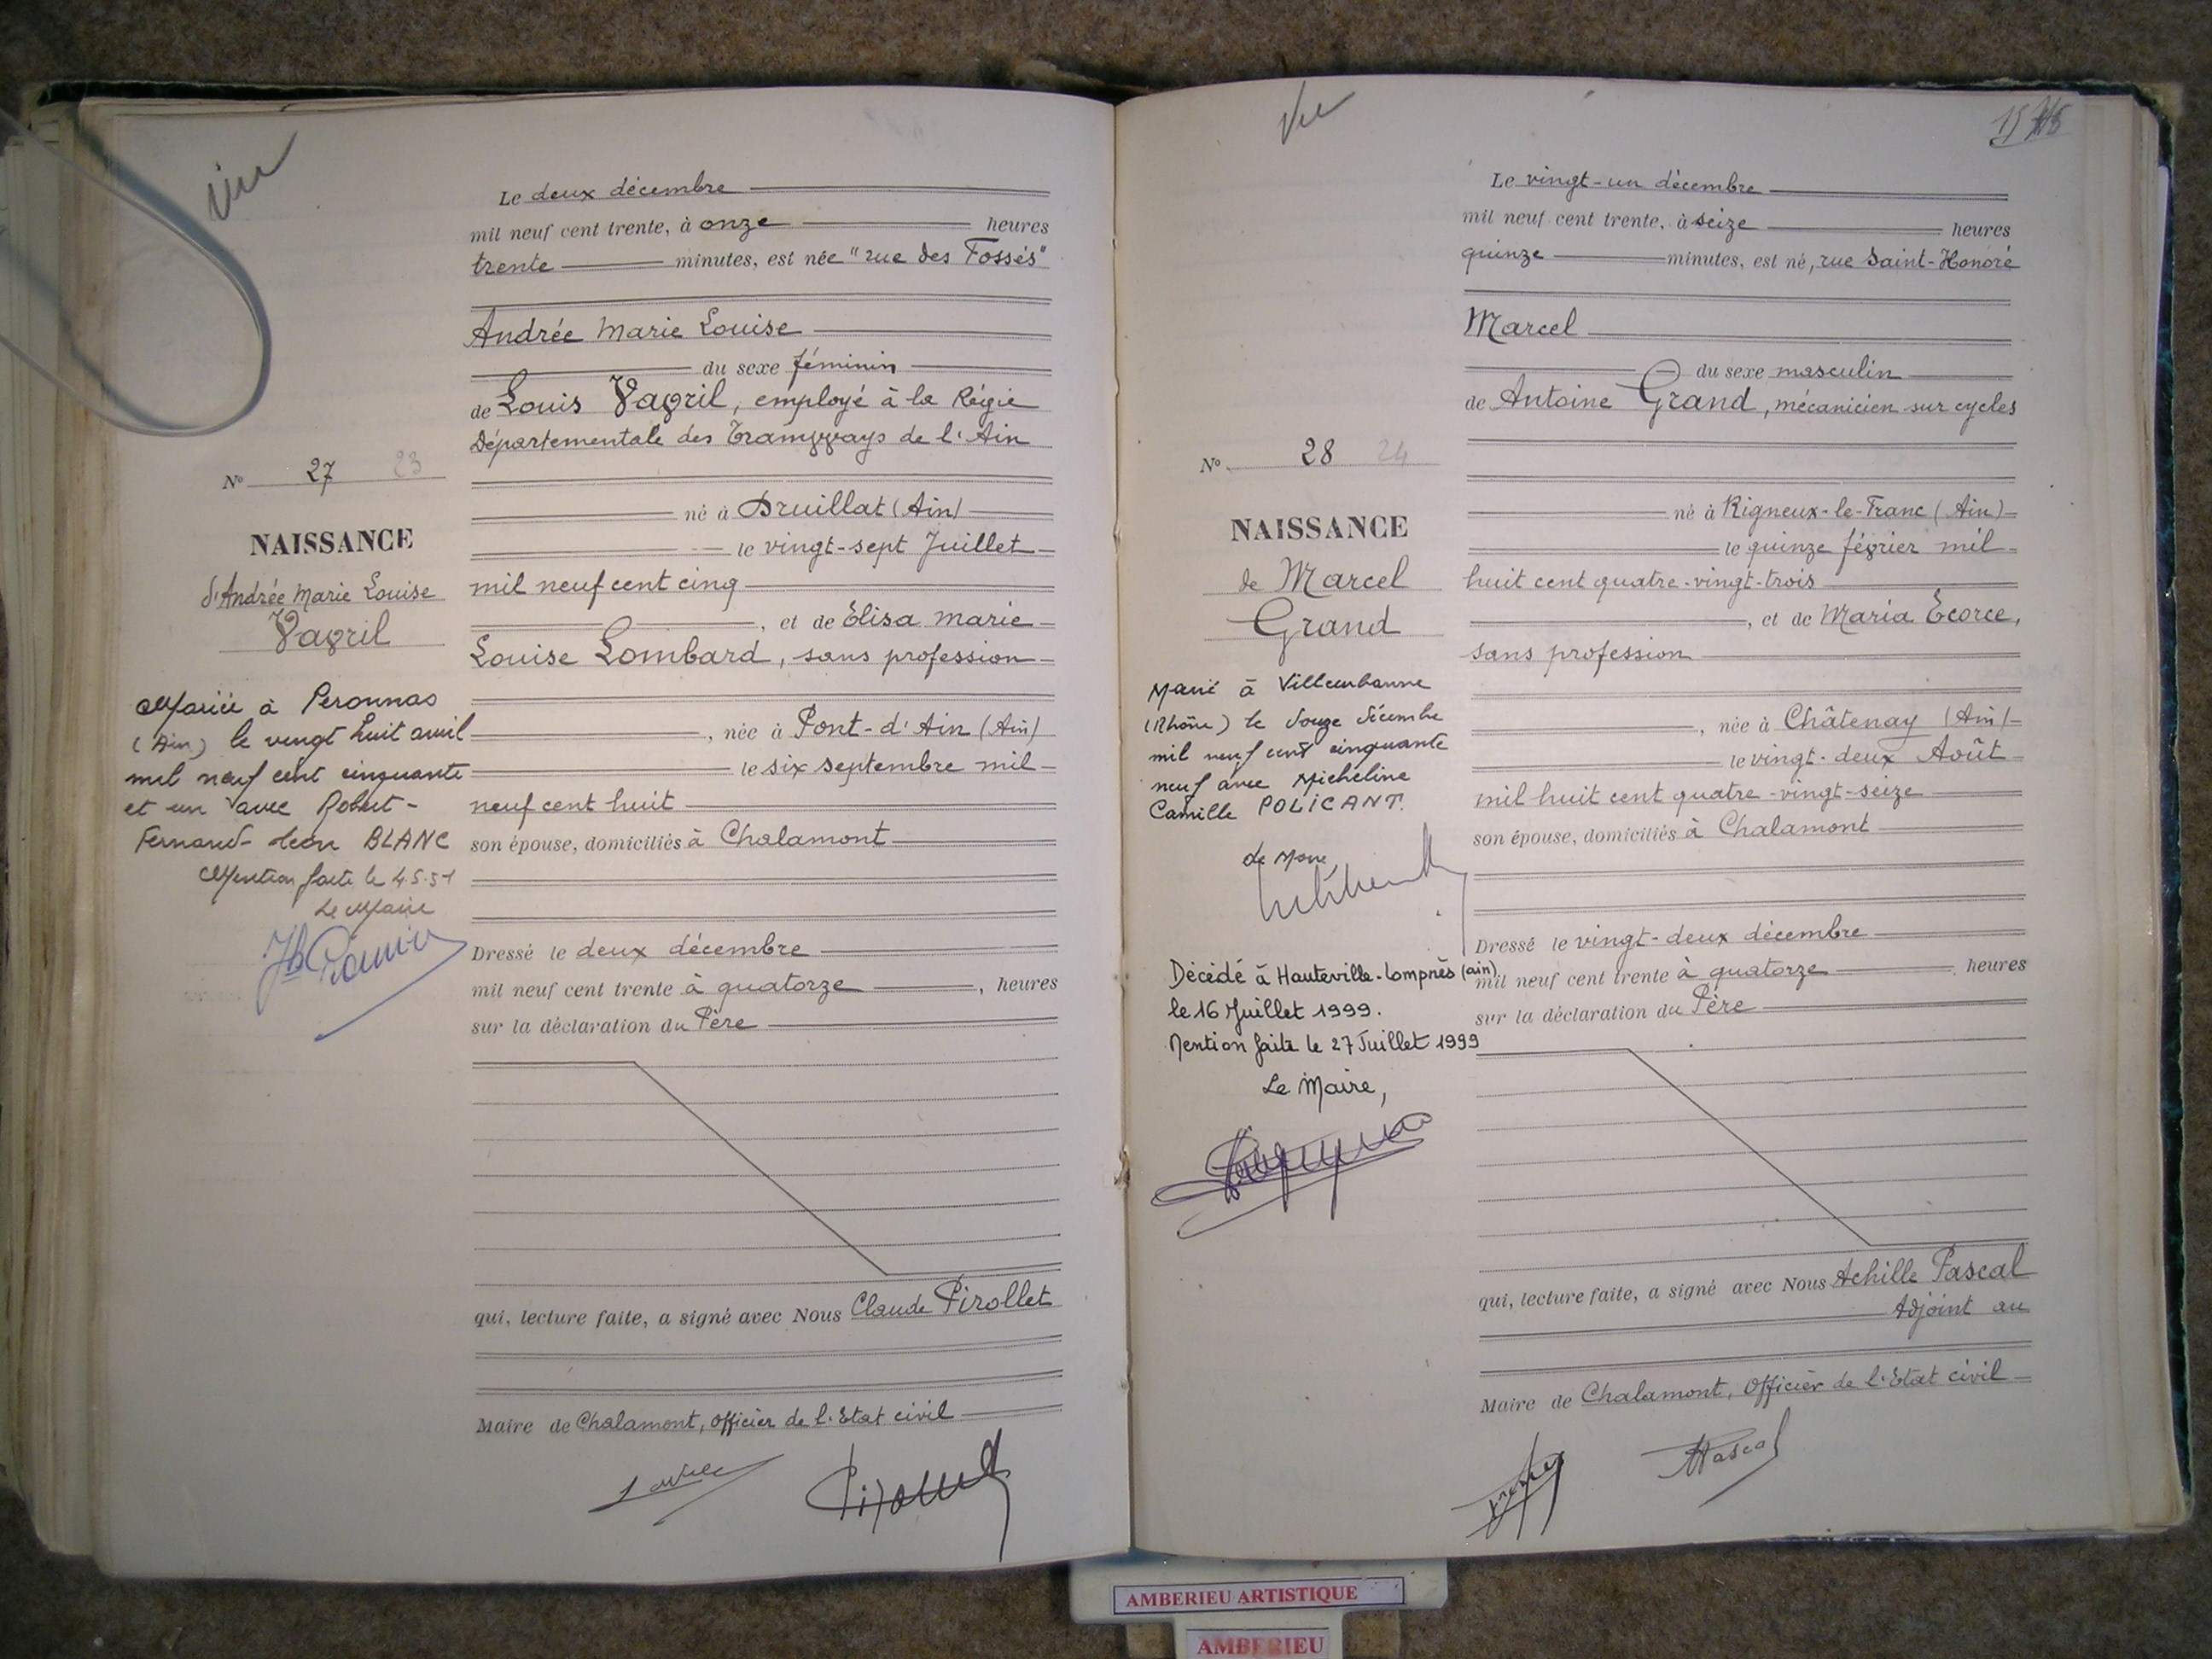 Le deux décembre
mil neuf cent trente, à onze heures
trente minutes, est née "rue des Fossés"
Andrée Marie Louise
du sexe féminin
de Louis Vavril, employé à la Régie
Départementale des Tramways de l'Ain
né à Druillat (Ain)
le vingt-sept Juillet
mil neuf cent cinq
, et de Elisa Marie
Louise Lombard, sans profession
, née à Pont-d'Ain (Ain)
le six septembre mil
neuf cent huit
son épouse, domiciliés à Chalamont
Dressé le deux décembre
mil neuf cent trente à quatorze , heures
sur la déclaration du Père
qui, lecture faite, a signé avec Nous Claude Pirollet
Maire de Chalamont, Officier de l'Etat civil
N° 27 23
NAISSANCE
d'Andrée Marie Louise
Vavril
Mariée à Peronnas
(Ain) le vingt huit avril
mil neuf cent cinquante
et un avec Robert-
Fernand-Léon BLANC
Mention faite le 4.5.51
Le Maire
Vu
Le vingt-un décembre
mil neuf cent trente, à seize heures
quinze minutes, est né, rue Saint-Honoré
Marcel
du sexe masculin
de Antoine Grand, mécanicien sur cycles
né à Rigneux-le-Franc (Ain)
le quinze février mil
huit cent quatre-vingt-trois
, et de Maria Ecorce,
sans profession
, née à Châtenay (Ain)
le vingt-deux Août
mil huit cent quatre-vingt-seize
son épouse, domiciliés à Chalamont
Dressé le vingt-deux décembre
mil neuf cent trente à quatorze heures
sur la déclaration du Père
qui, lecture faite, a signé avec Nous Achille Pascal
Adjoint au
Maire de Chalamont, Officier de l'Etat civil
APascal
N° 28 24
NAISSANCE
de Marcel
Grand
Marié à Villeurbanne
(Rhône) le douze décembre
mil neuf cent cinquante
neuf avec Micheline
Camille POLICANT.
Le Maire
Décédé à Hauteville-Lompnès (ain)
le 16 Juillet 1999.
Mention faite le 27 Juillet 1999
Le Maire,
AMBERIEU ARTISTIQUE
AMBERIEU